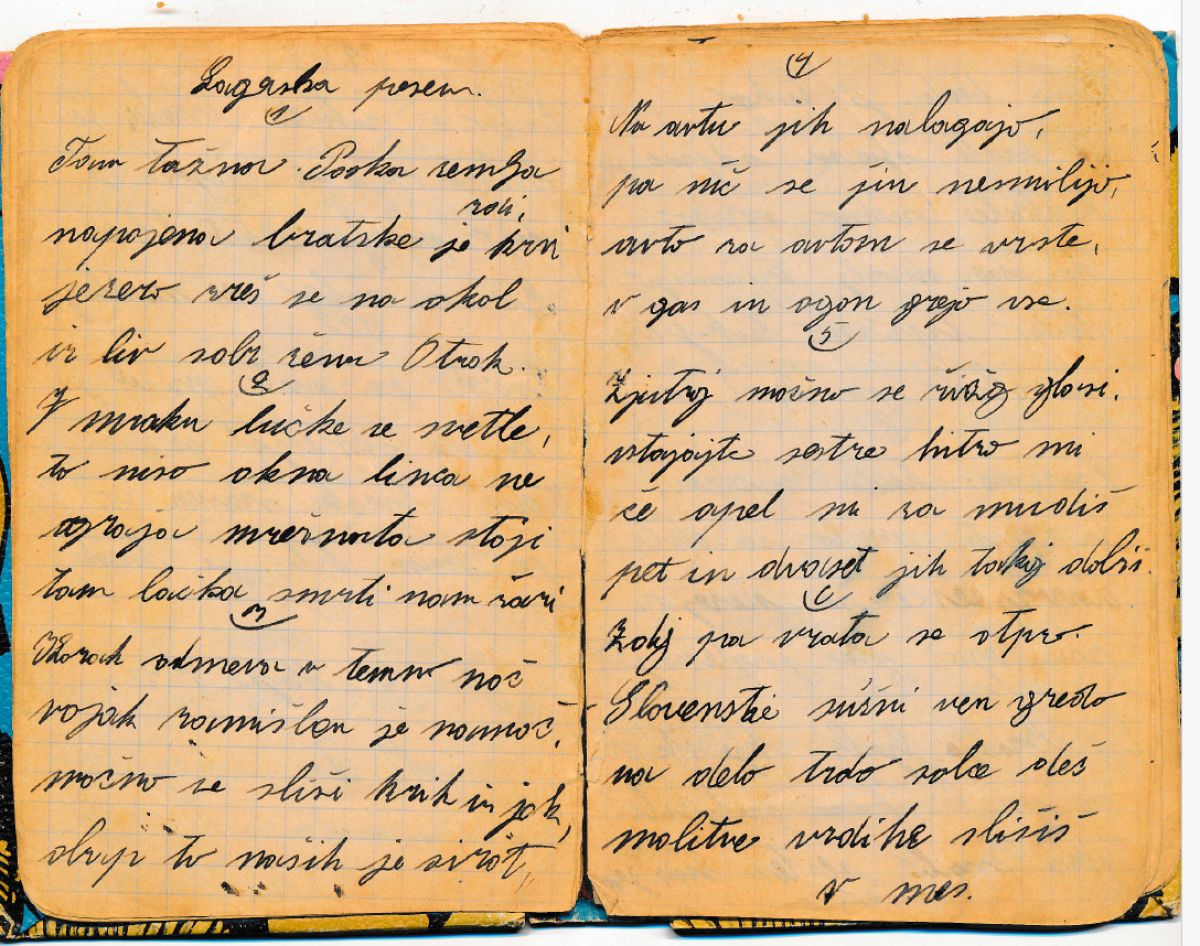 Lagarska pesem.
1
Tam tažna Poska zemlja
rosi,
napojena bratske je krvi
jezero zreš se na okol
in liv solz žena Otrok.
2
V mraku lučke se svetle,
to niso okna linca ne
ograja mrežnata stoji
tam lučka smrti nam žari
3
Korak odmeva v temno noč
vojak zamišlen je naumoč,
močno se sliši krik in jok,
obup to naših je sirot,,
4
Na avtu jih nalagajo,
pa nič se jim nesmilijo,
avto za avtom se vrste,
v gas in ogon grejo vse.
5
Zjutrj močno se glasi,
vstajajte sestre hitro mi
če apel mi za mudiš
pet in dvajset jih takoj dobiš.
6
Zdej pa vrata se otpro.
Slovenske sužni ven gredo
na delo trdo solce deš
molitve vzdihe slišiš
v mes.